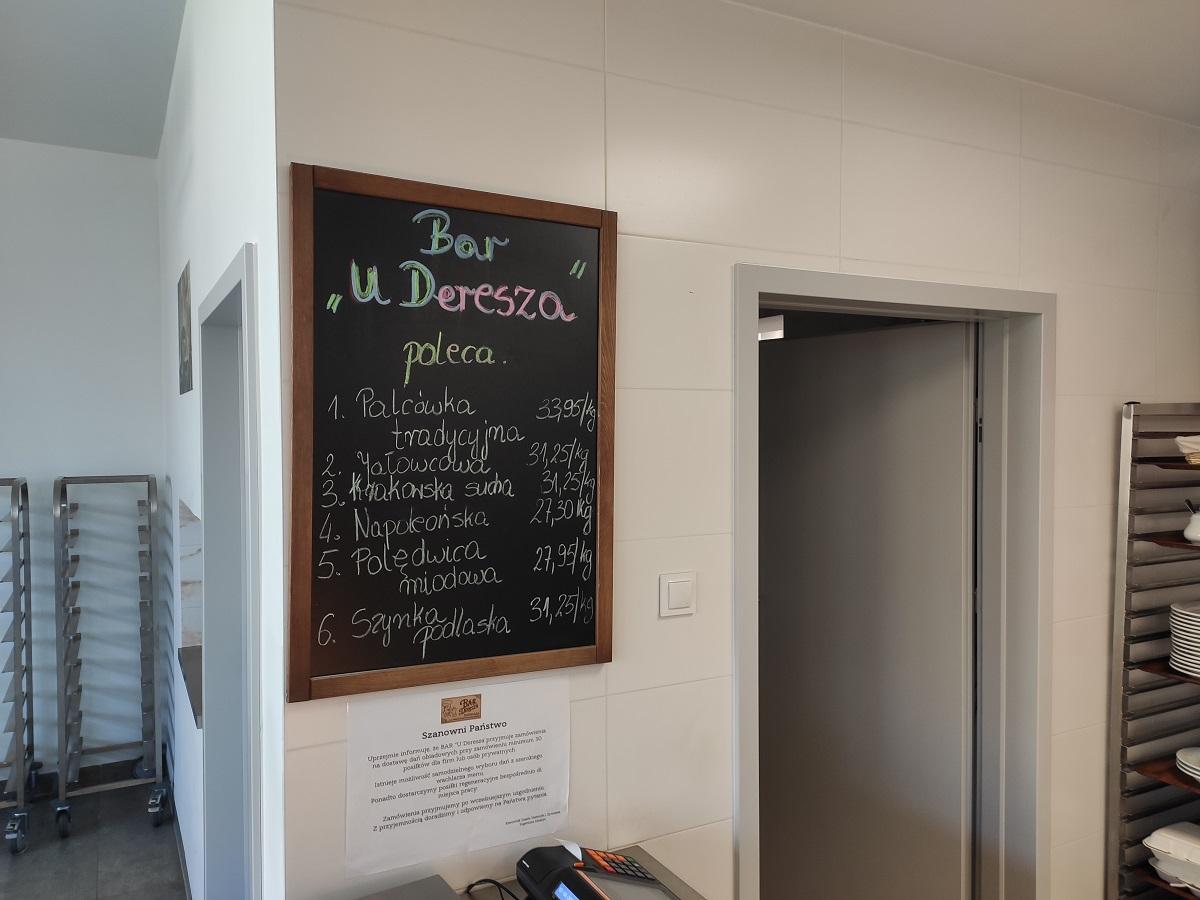 Bar
„U Deresza"
poleca.
1. Palcówka 33,95/kg
tradycyjna
2. Jałowcowa 31,25/kg
3. Krakowska sucha 31,25/kg
4. Napoleońska 27,30/kg
5. Polędwica 27,95/kg
miodowa
6. Szynka 31,25/kg
podlaska
BAR
Szanowni Państwo
Uprzejmie informuję, że BAR "U Deresza przyjmuje zamówienia
na dostawę dań obiadowych przy zamówieniu minimum 30
posiłków dla firm lub osób prywatnych
Istnieje możliwość samodzielnego wyboru dań z szerokiego
wachlarza menu
Ponadto dostarczymy posiłki regeneracyjne bezpośrednio do
miejsca pracy.
Zamówienia przyjmujemy po wcześniejszym uzgodnieniu
Z przyjemnością doradzimy i odpowiemy na Państwa pytania